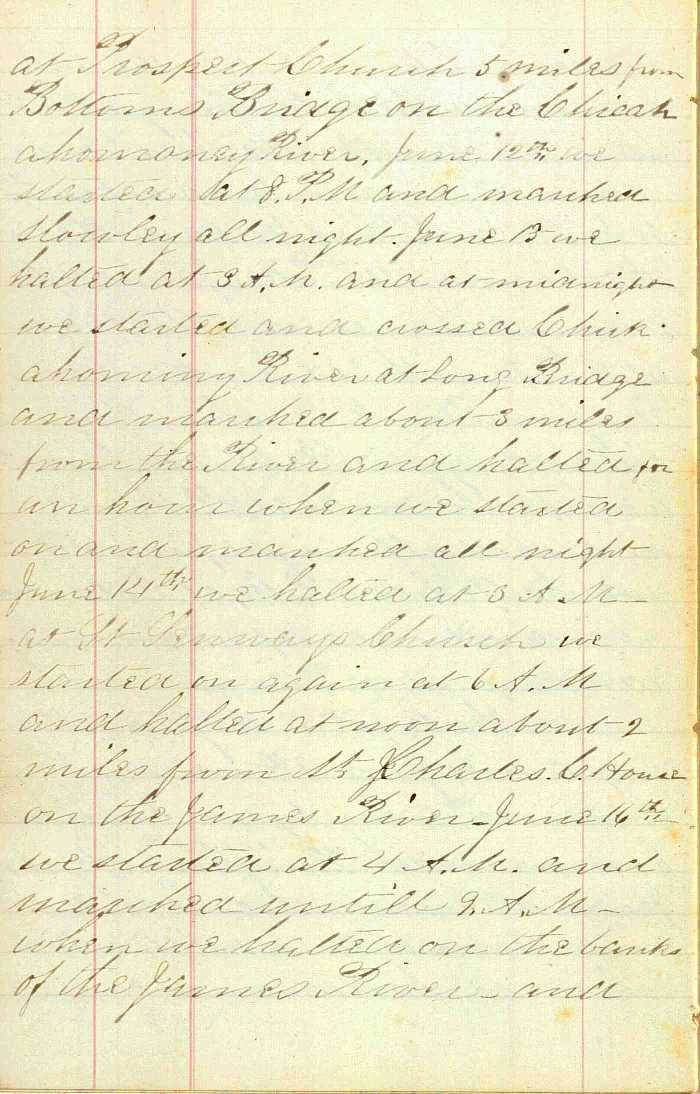 at Prospect Church 5 miles from
Bottoms Bridge on the Chicah
ahomoney River, June 12th we
started at 8. P.M and marched
slowley all night. June 13 we
halted at 3 A.M. and at midnight
we started and crossed Chick
ahominy River at Long Bridge
and marched about 3 miles
from the River and halted for
un hour when we started
on and marched all night
June 14th we halted at 3 A M -
at St Church we
started on again at 6 A.M
and halted at noon about 2
miles from St Charles. C. House
on the James River - June 16th
we started at 4 A.M. and
marched untill 9. A.M -
when we halted on the banks
of the James River - and